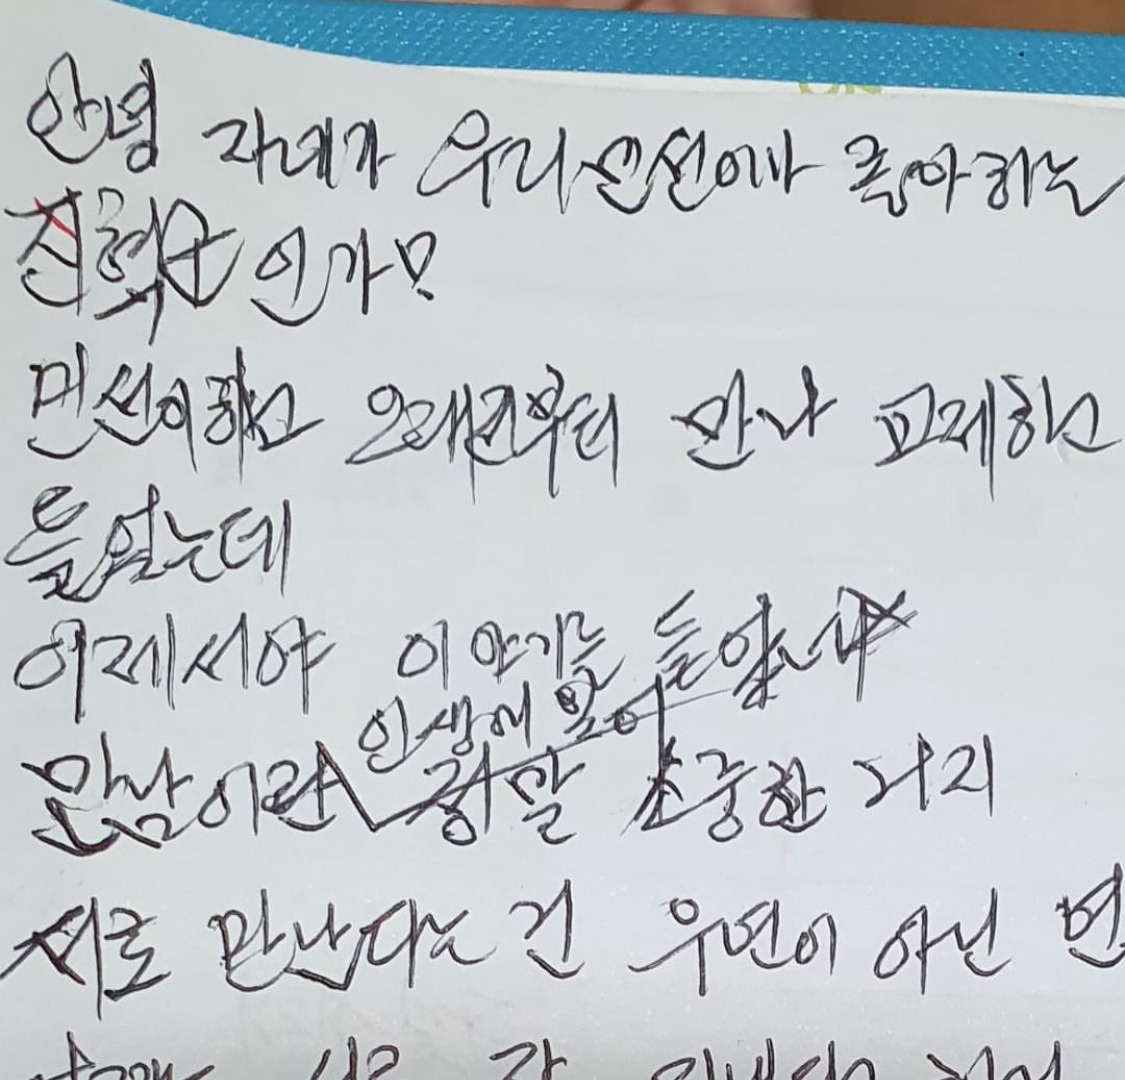 안녕 자네가 우리 민선이가 좋아하는
진혁군 인가?
민선이하고 오래전부터 만나 교제하고
들었는데
이제서야 이야기를 들었
인생에 있어
만남이란 정말 소중한 거지
서로 만난다는 건 우연이 아닌